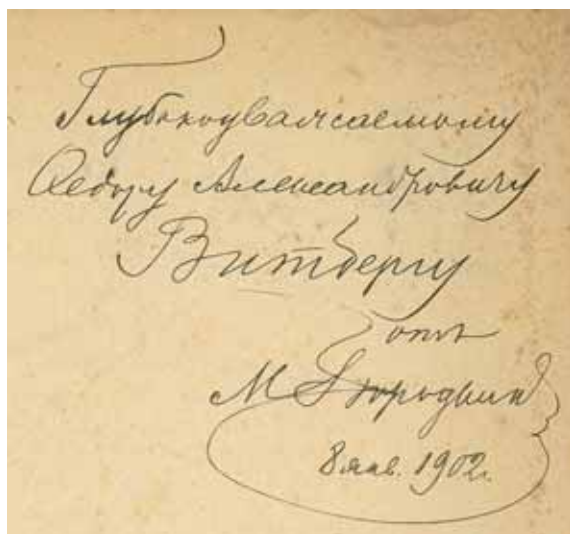 Глубокоуважаемому
Ѳедору Александровичу
Витбергу
отъ
М Бородкина
8 янв. 1902г.